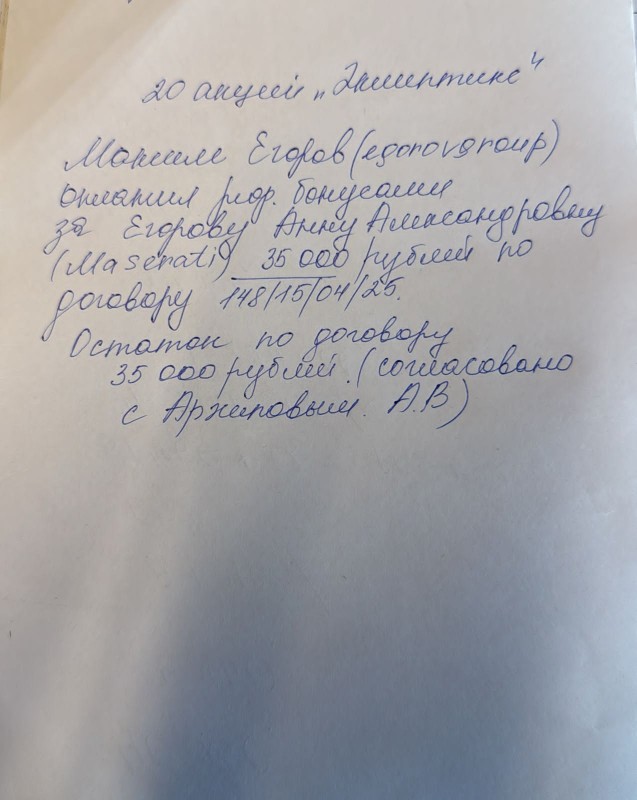 20 акций „Эклиптикс“
Максим Егоров (egorovgroup)
оплатил реф. бонусами
за Егорову Анну Александровну
(Maserati) 35 000 рублей по
договору 148/15/04/25.
Остаток по договору
35 000 рублей. (согласовано
с Архиповым. А.В)